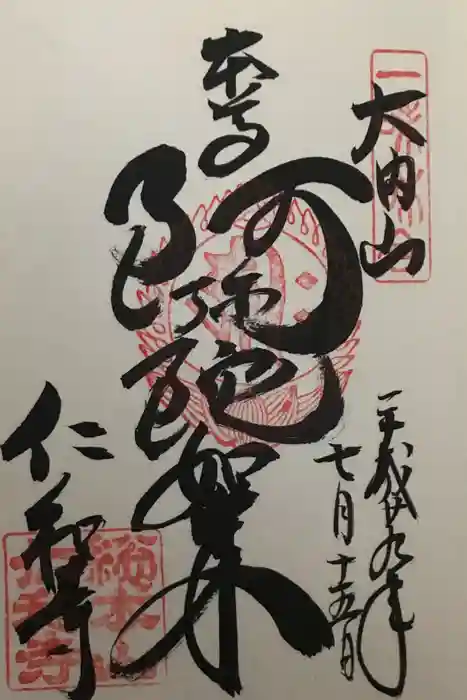 大内山
平成廿九年
七月十五日
本尊
阿弥陀如来
仁和寺
總本山
仁和寺